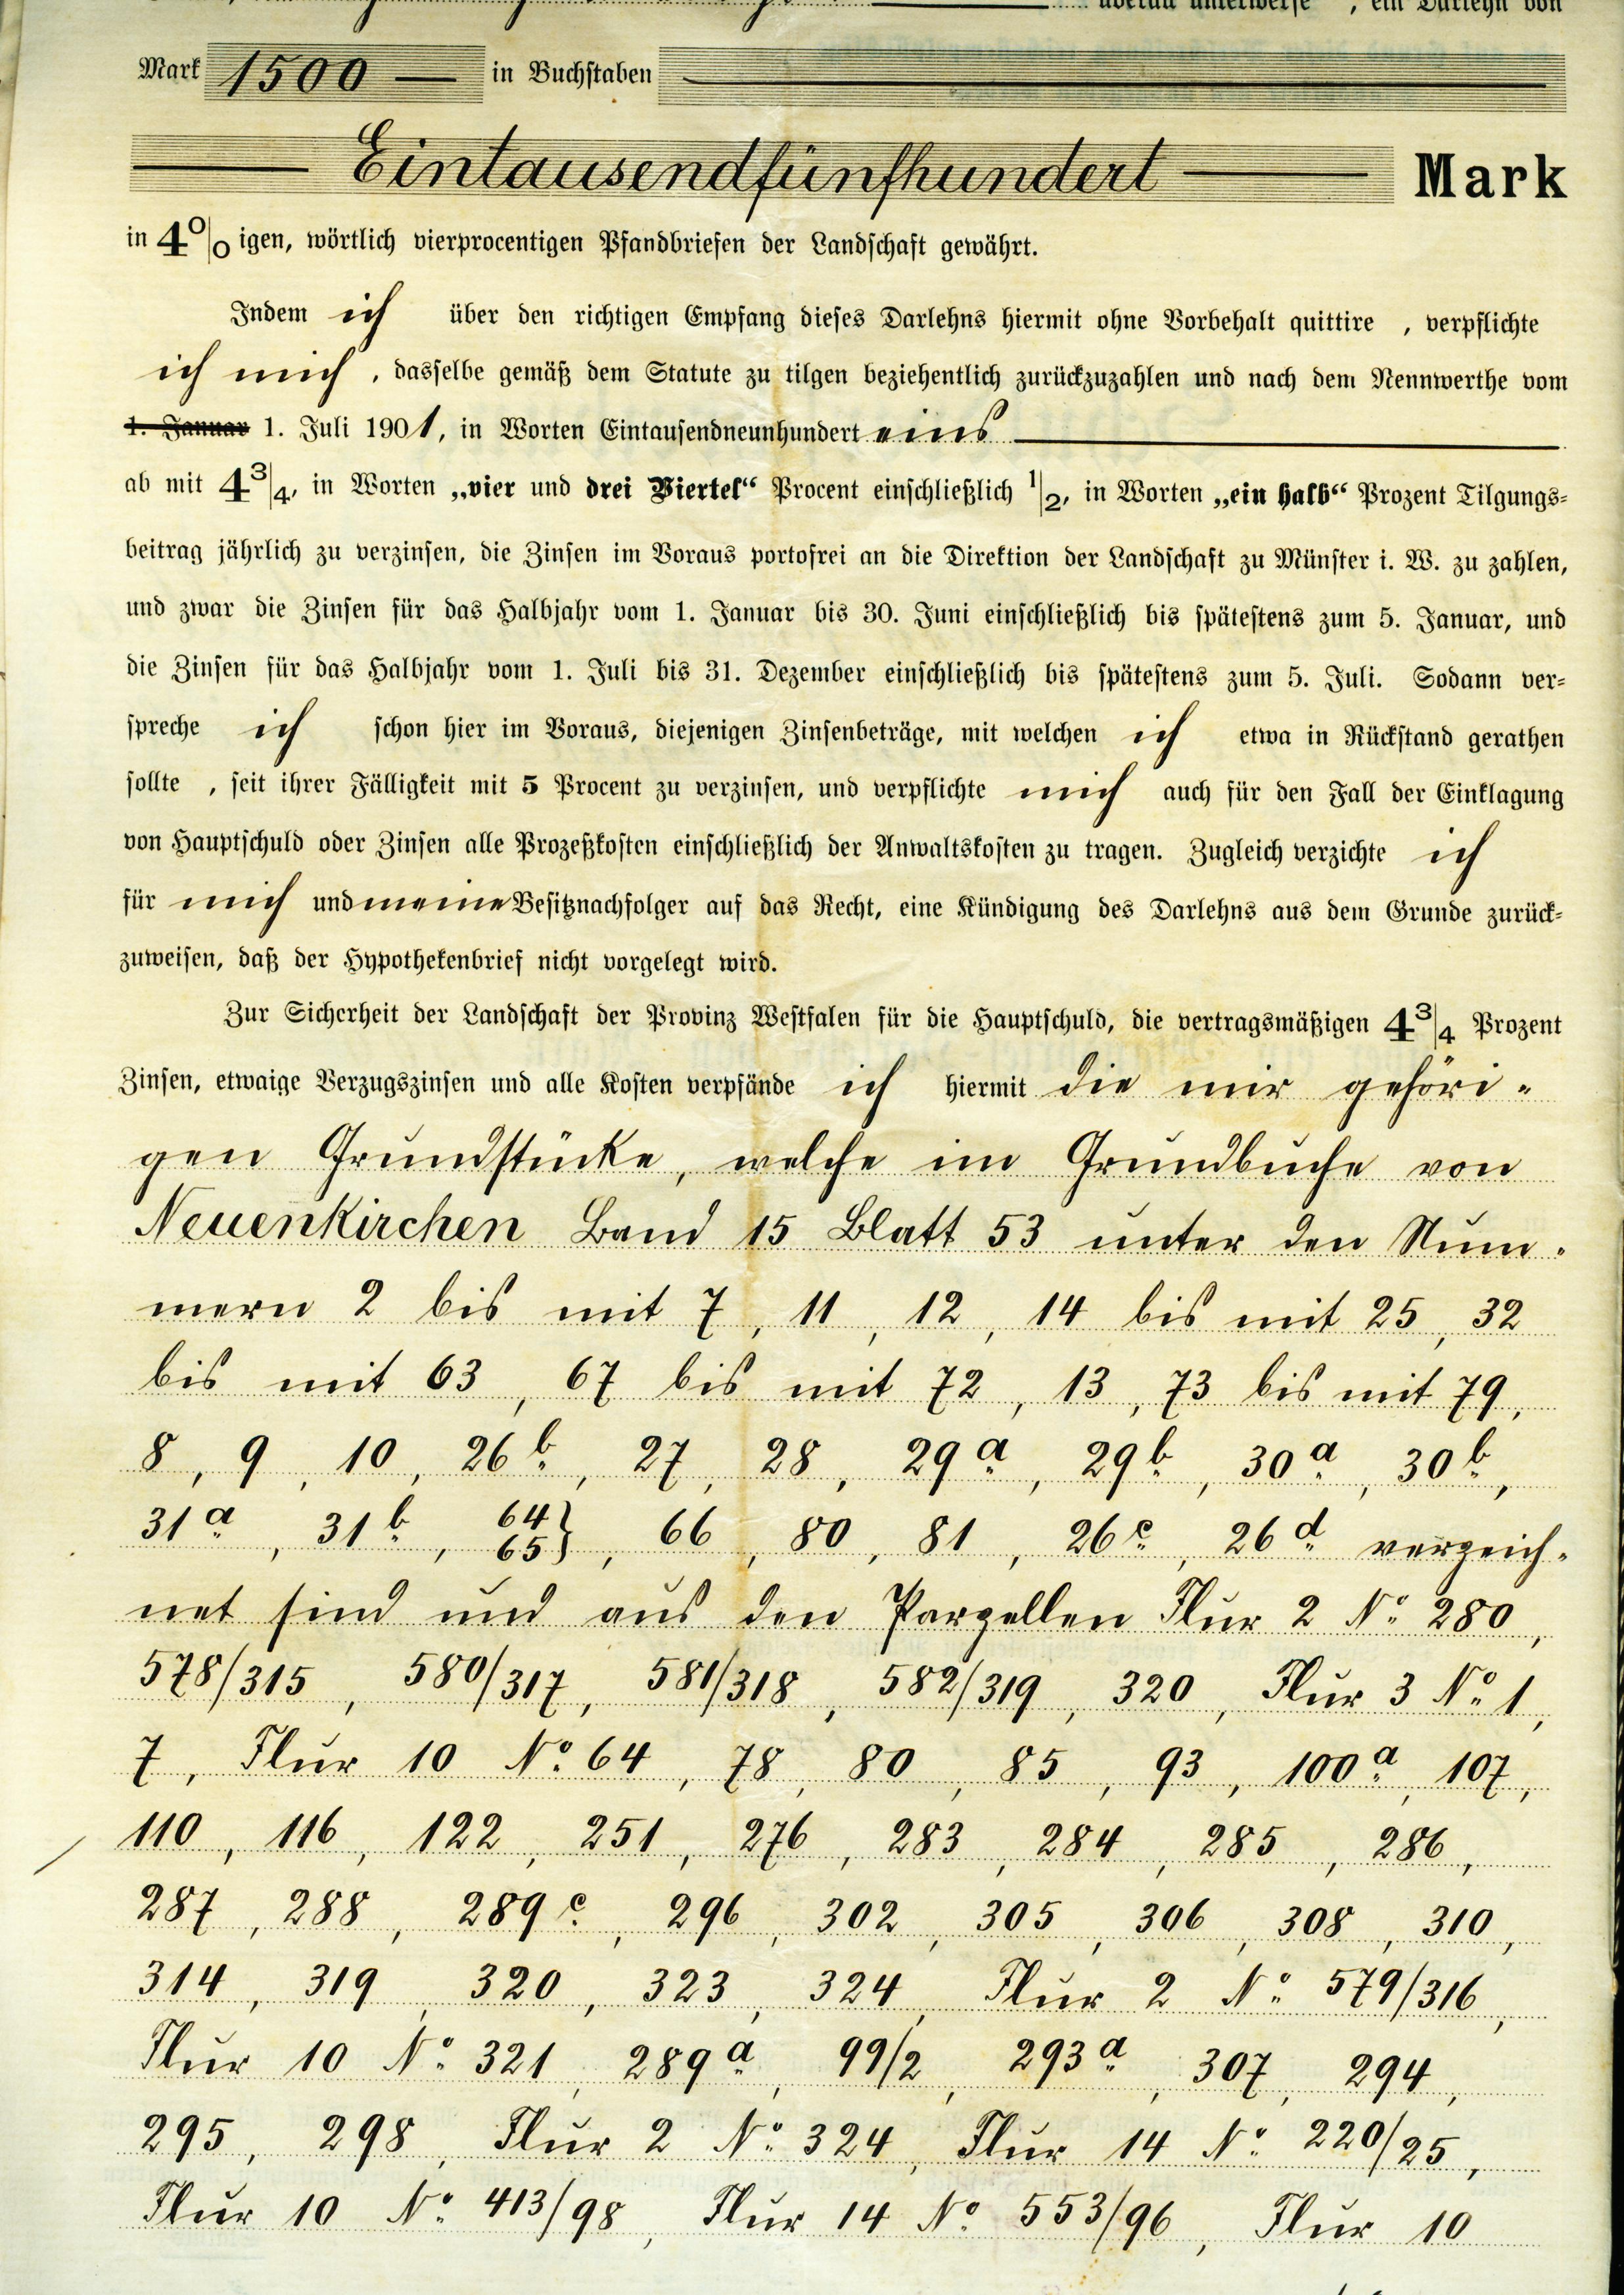 überall unterwerfe , ein Darlehn von
Mark 1500 — in Buchstaben
Eintausendfünfhundert Mark
in 4% igen, wörtlich vierprocentigen Pfandbriefen der Landschaft gewährt.
Indem ich über den richtigen Empfang dieses Darlehns hiermit ohne Vorbehalt quittire , verpflichte
ich mich , dasselbe gemäß dem Statute zu tilgen beziehentlich zurückzuzahlen und nach dem Nennwerthe vom
1. Januar 1. Juli 1901, in Worten Eintausendneunhundert eins
ab mit 4 3/4, in Worten „vier und drei Viertel“ Procent einschließlich 1/2, in Worten „ein halb“ Prozent Tilgungs-
beitrag jährlich zu verzinsen, die Zinsen im Voraus portofrei an die Direktion der Landschaft zu Münster i. W. zu zahlen,
und zwar die Zinsen für das Halbjahr vom 1. Januar bis 30. Juni einschließlich bis spätestens zum 5. Januar, und
die Zinsen für das Halbjahr vom 1. Juli bis 31. Dezember einschließlich bis spätestens zum 5. Juli. Sodann ver-
spreche ich schon hier im Voraus, diejenigen Zinsenbeträge, mit welchen ich etwa in Rückstand gerathen
sollte , seit ihrer Fälligkeit mit 5 Procent zu verzinsen, und verpflichte mich auch für den Fall der Einklagung
von Hauptschuld oder Zinsen alle Prozeßkosten einschließlich der Anwaltskosten zu tragen. Zugleich verzichte ich
für mich und meine Besitznachfolger auf das Recht, eine Kündigung des Darlehns aus dem Grunde zurück-
zuweisen, daß der Hypothekenbrief nicht vorgelegt wird.
Zur Sicherheit der Landschaft der Provinz Westfalen für die Hauptschuld, die vertragsmäßigen 4 3/4 Prozent
Zinsen, etwaige Verzugszinsen und alle Kosten verpfände ich hiermit die mir gehöri-
gen Grundstücke, welche im Grundbuche von
Neuenkirchen Band 15 Blatt 53 unter den Num-
mern 2 bis mit 7, 11, 12, 14 bis mit 25, 32
bis mit 63, 67 bis mit 72, 13, 73 bis mit 79,
8, 9, 10, 26b, 27, 28, 29a, 29b, 30a, 30b,
31a, 31b, 64 65}, 66, 80, 81, 26c, 26d verzeich-
net sind und aus den Parzellen Flur 2 No 280,
578/315, 580/317, 581/318, 582/319, 320, Flur 3 No 1,
7, Flur 10 No 64, 78, 80, 85, 93, 100a, 107,
110, 116, 122, 251, 276, 283, 284, 285, 286,
287, 288, 289c, 296, 302, 305, 306, 308, 310,
314, 319, 320, 323, 324, Flur 2 No 579/316,
Flur 10 No 321, 289a, 99/2, 293a, 307, 294,
295, 298, Flur 2 No 324, Flur 14 No 220/25,
Flur 10 No 413/98, Flur 14 No 553/96, Flur 10